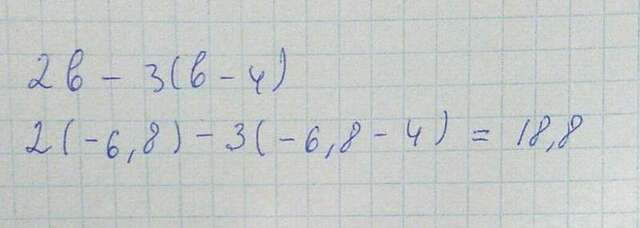 2в - 3(в - 4)
2(-6,8) - 3(-6,8 - 4) = 18,8